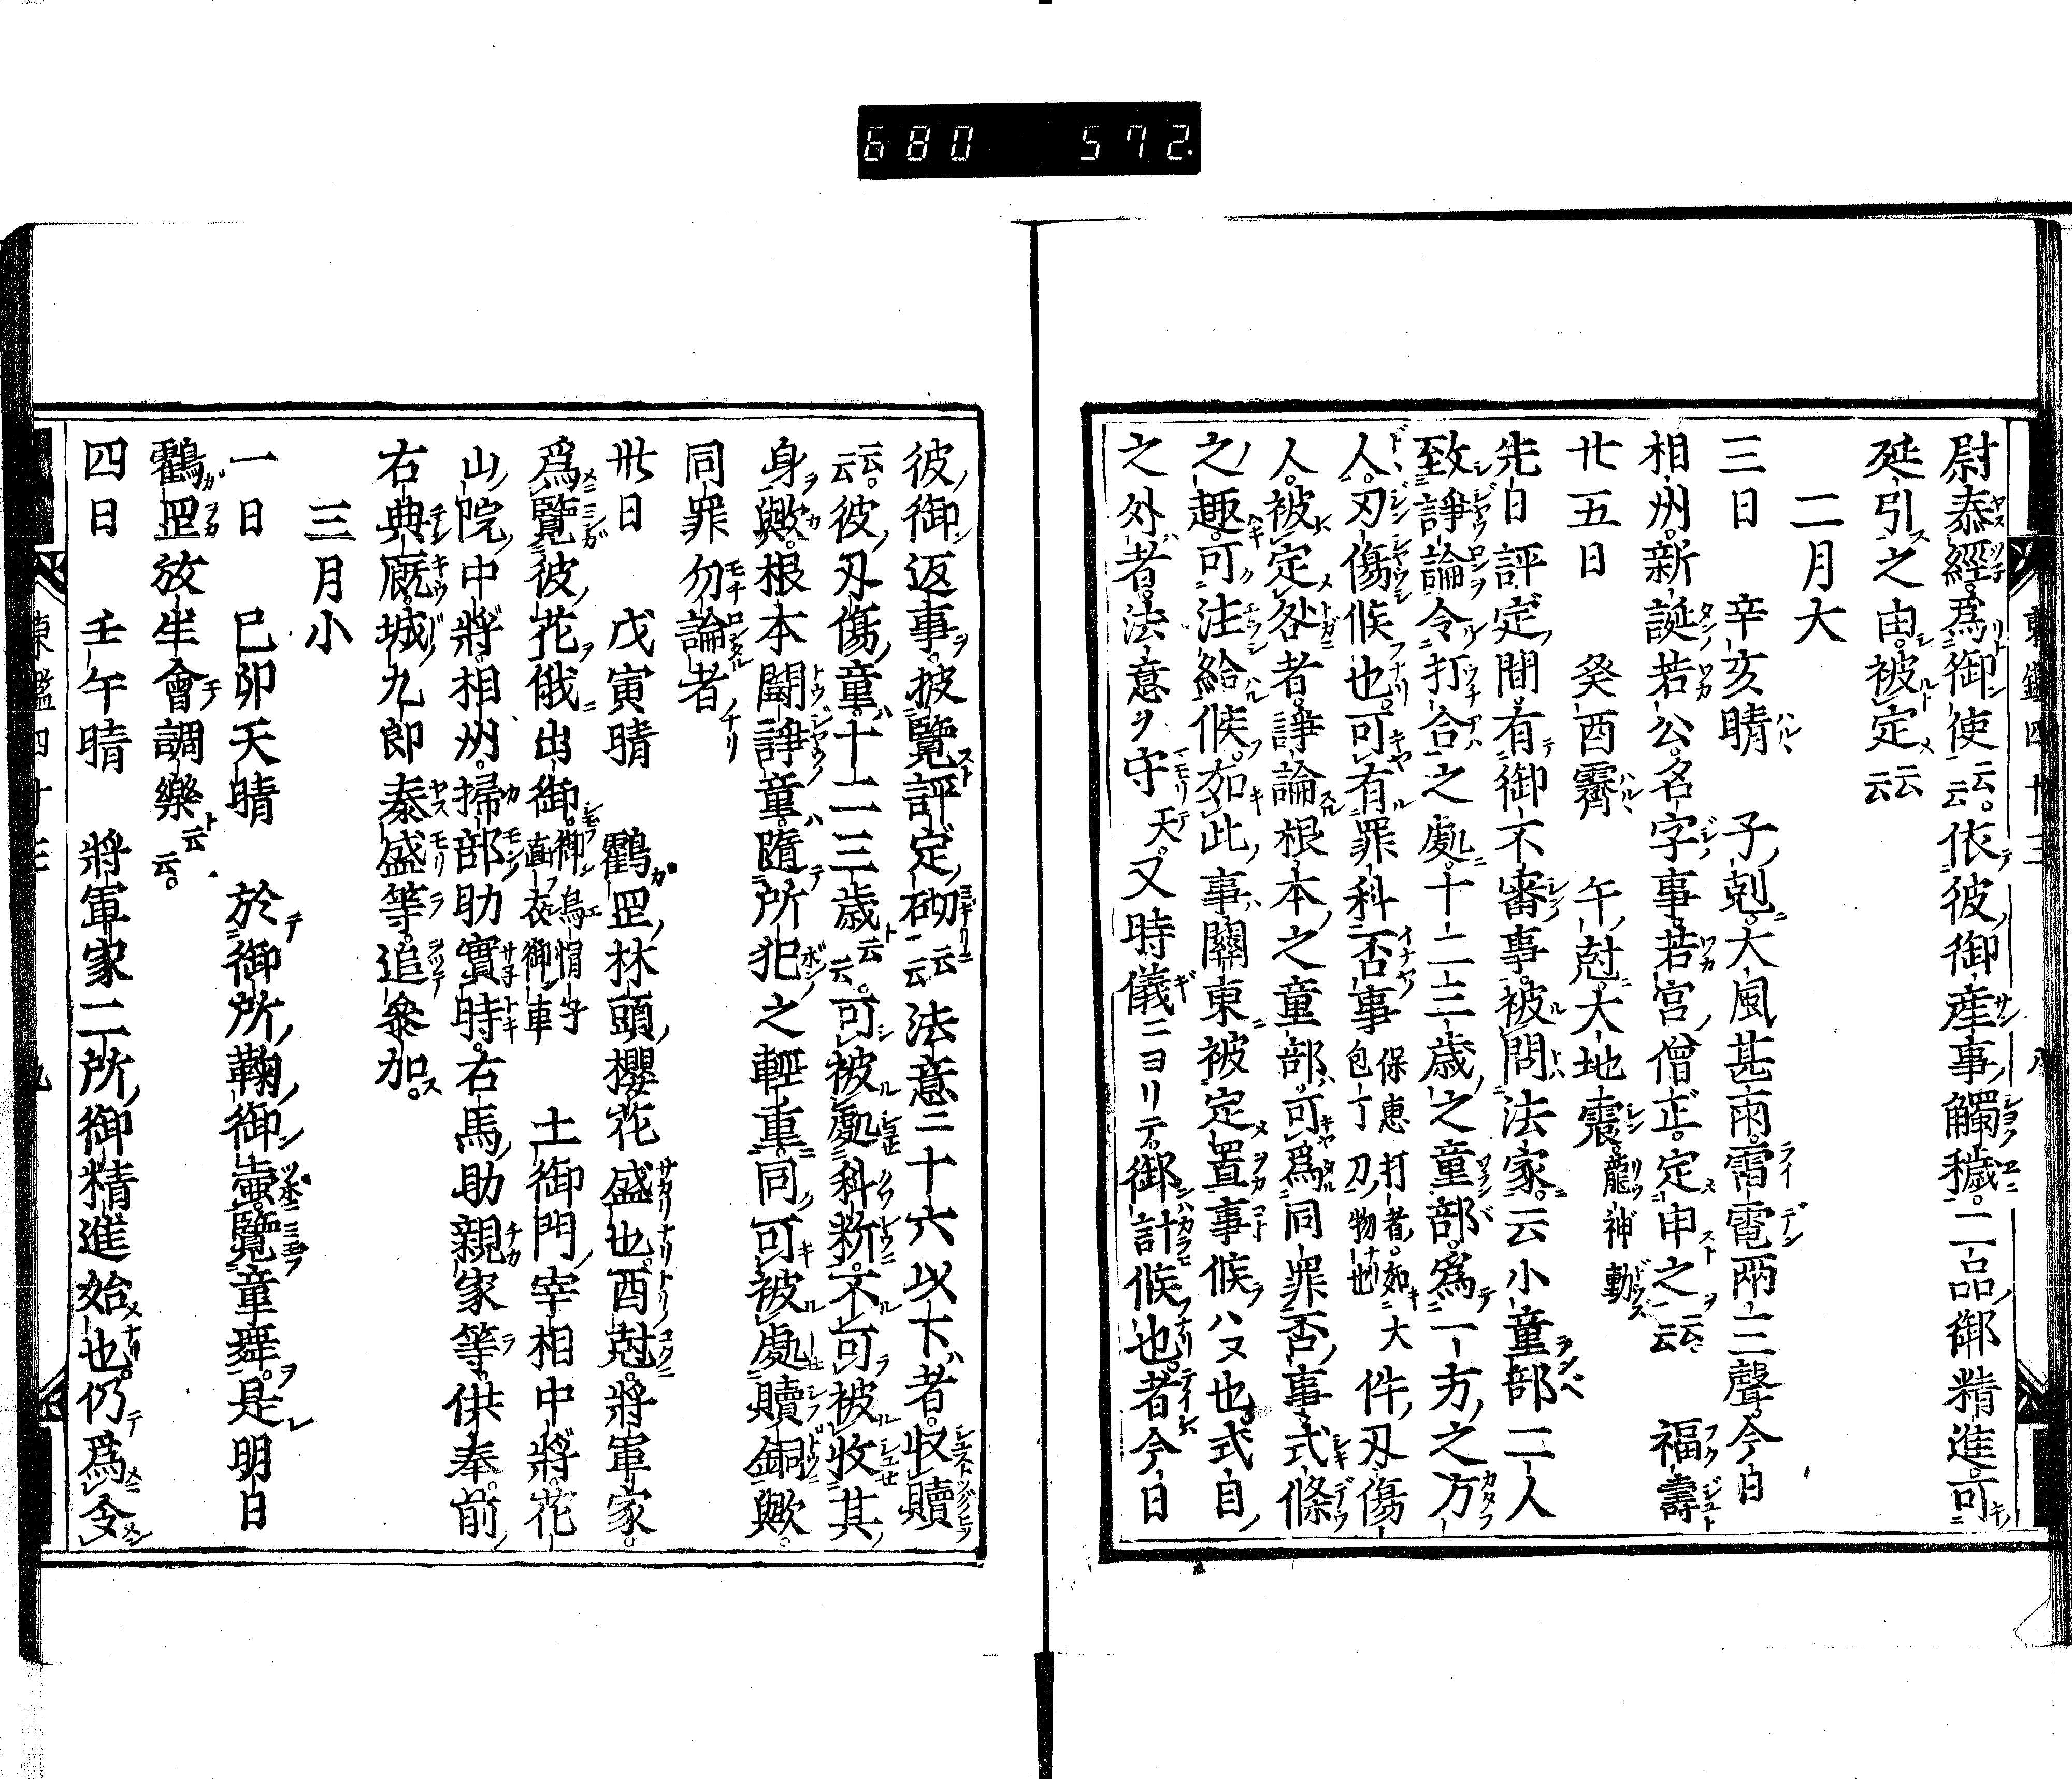 680 572.
東鑑四十三 八
尉泰經。爲御使云云。依彼御産事觸穢。二品御精進。可
延引之由。被定云云
二月大
三日 辛亥晴 子剋。大風甚雨。雷電兩三聲。今日
相州。新誕若公。名字事。若宮僧正。定申之云云 福壽
廿五日 癸酉霽 午尅。大地震。龍神動
先日評定間。有御不審事。被問法家。云小童部二人
致諍論令打合之處。十二三歲之童部。爲一方之方
人。刃傷候也。可有罪科否事 保惠打者。如大包丁刀物也 件刃傷
人。被定咎者。諍論根本之童部。可爲同罪否事。式條
之趣。可注給候。如此事。關東被定置事候ハヌ也。式目
之外者。法意ヲ守天。又時儀ニヨリテ。御計候也。者今日
彼御返事。披覽評定砌云云 法意ニ十六以下者。收贖
云云。彼刃傷童。十二三歲云云。可被處科料。不可被收其
身歟。根本鬪諍童。隨所犯之輕重。同可被處贖銅歟。
同罪勿論者
卅日 戊寅晴 鶴罡林頭櫻花盛也。酉尅。將軍家。
爲覽彼花俄出御。御烏帽子直衣御車 土御門宰相中將。花
山院中將。相州。掃部助實時。右馬助親家等。供奉。前
右典厩。城九郎泰盛等。追參加。
三月小
一日 己卯天晴 於御所鞠御壺。覽童舞。是明日
鶴罡放生會調樂云云。
四日 壬午晴 將軍家二所御精進始也。仍爲令
東鑑四十三 九